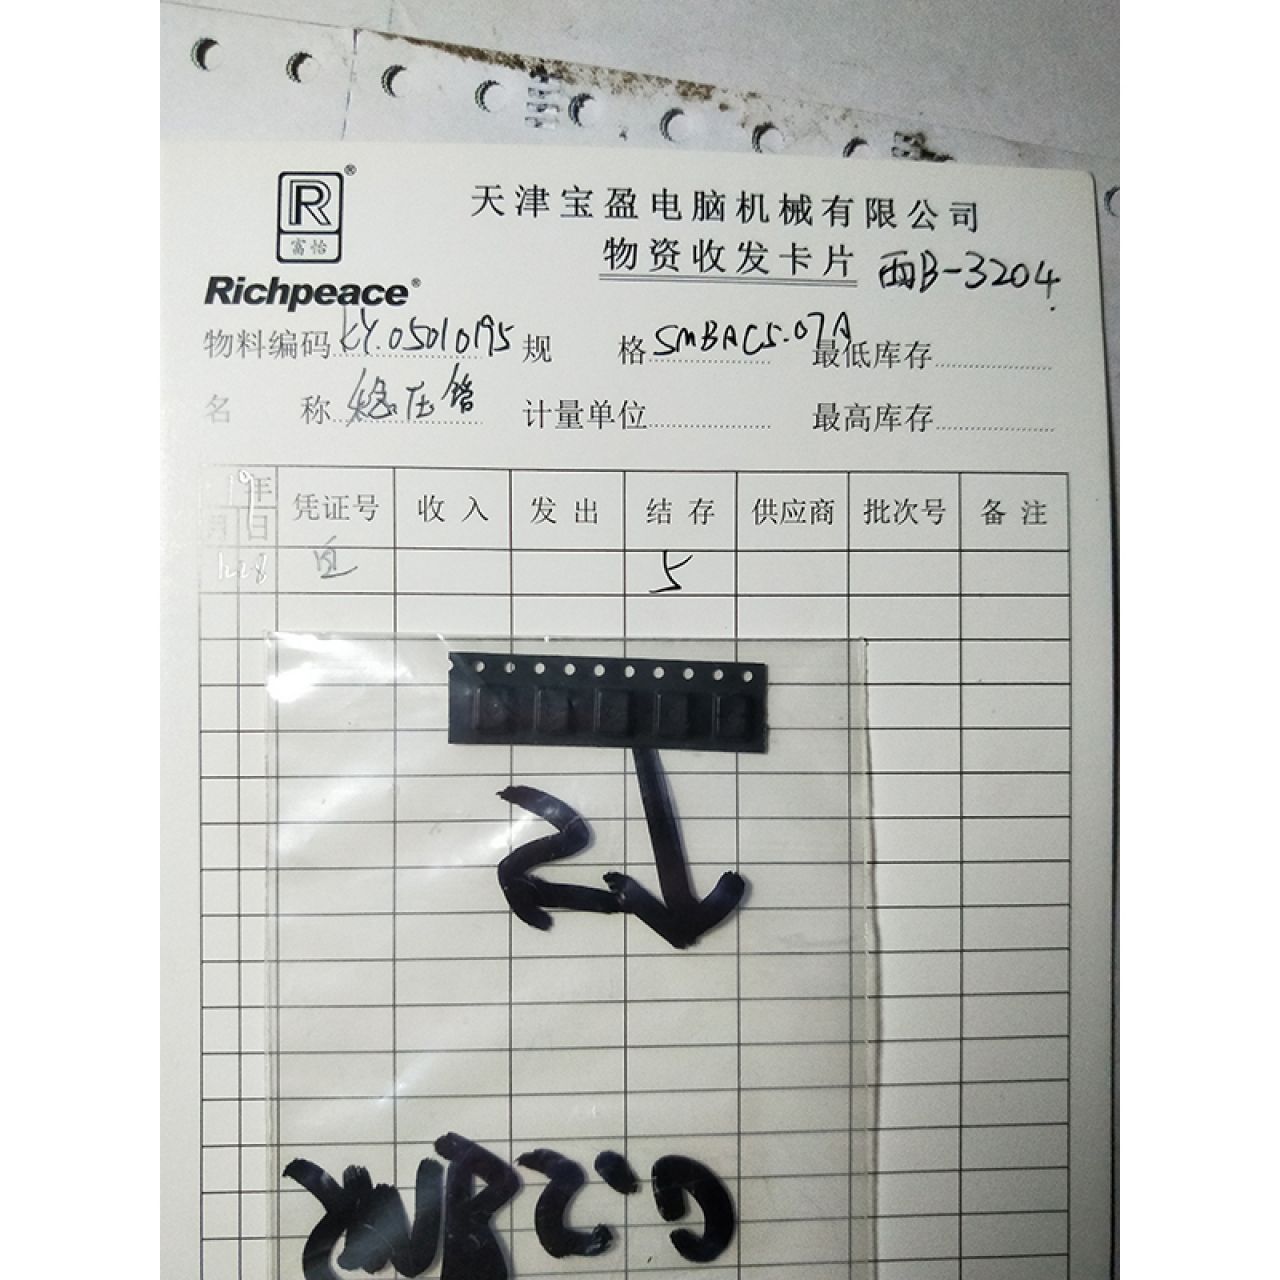 R®
富怡
Richpeace®
天津宝盈电脑机械有限公司
物资收发卡片 西B-3204
物料编码 KY.05010195 规格 SMBAC5.07A 最低库存
名称 稳压管 计量单位 最高库存
19年 凭证号 收入 发出 结存 供应商 批次号 备注
月 日
1228 5